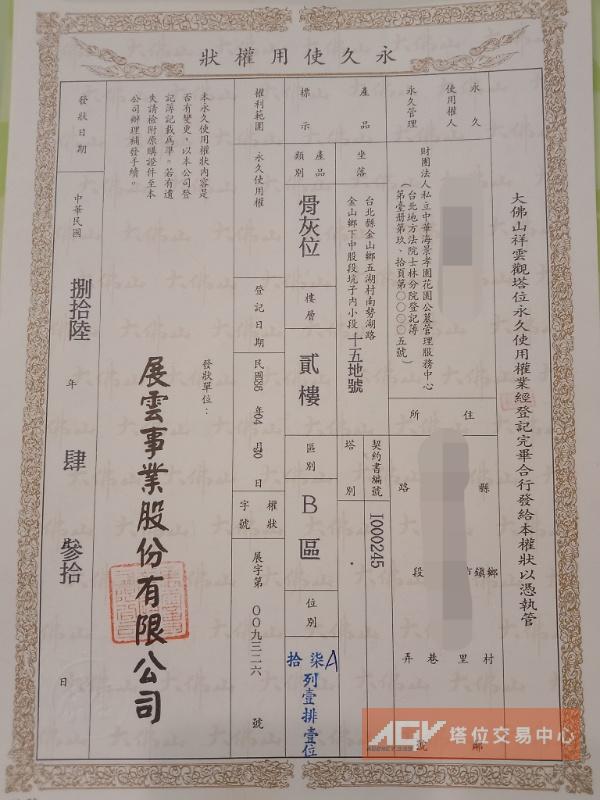 永久使用權狀
大佛山祥雲觀塔位永久使用權業經登記完畢合行發給本權狀以憑執管
永久使用權人
住所
縣
鄉鎮市
村里
鄰
路
段
巷
弄
號
永久管理
財團法人私立中華海景孝園花園公墓管理服務中心
(台北地方法院士林分院登記簿
第壹册第玖、拾頁第〇〇〇〇五號)
產品標示
坐落
台北縣金山鄉五湖村南勢湖路
金山鄉下中股段坑子內小段十五地號
契約書編號
I000245
塔別
產品類別
骨灰位
樓層
貳樓
區別
B區
位別
A柒拾列壹排壹位
權利範圍
永久使用權
登記日期
民國86年04月30日
權狀字號
展字第〇〇九三二六號
本永久使用權狀內容是
否有變更,以本公司登
記簿記載為準。若有遺
失請檢附原購證件至本
公司辦理補發手續。
發狀單位:
展雲事業股份有限公司
發狀日期
中華民國捌拾陸年肆參拾日
AGV 塔位交易中心